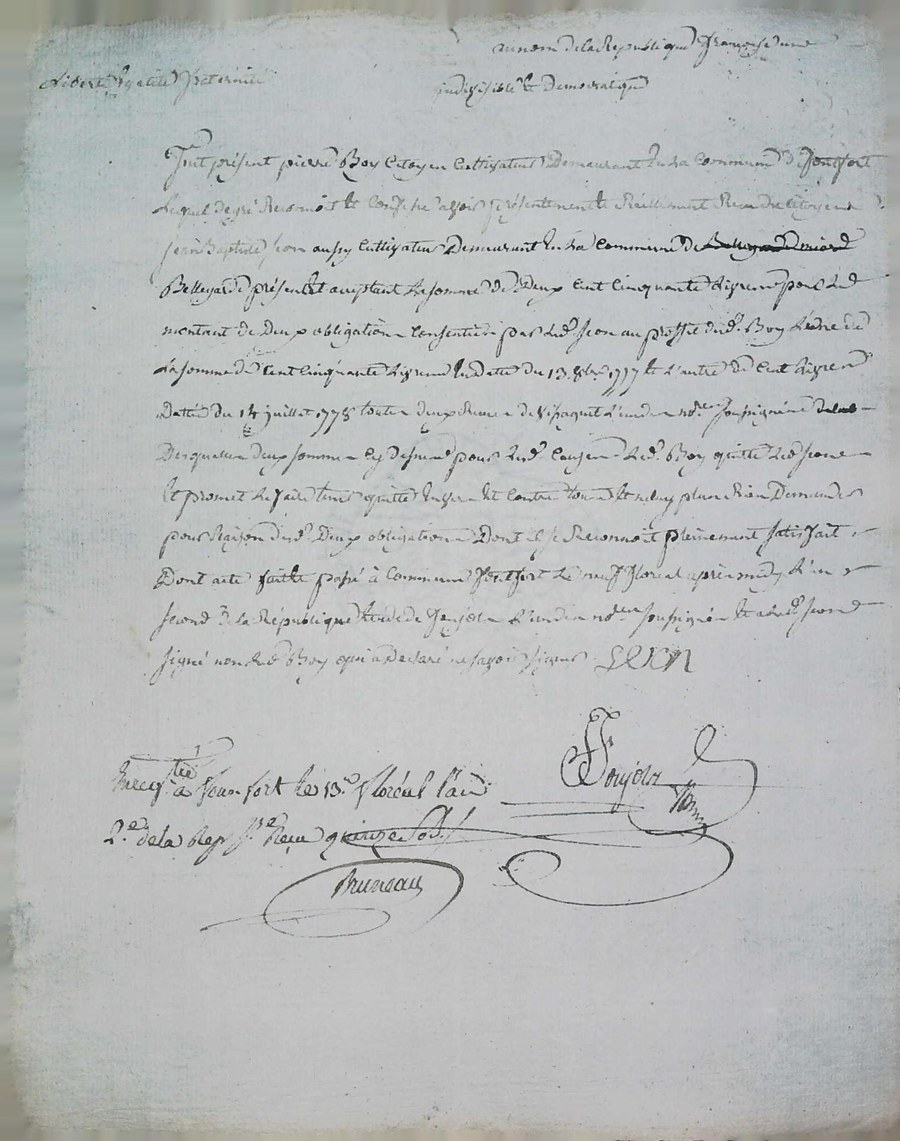 au nom de la Republique françoise une
Liberté Egalité fraternité
indivisible et Democratique
fut présent pierre Boy Citoyen Cultivateur Demeurant En la Commune de fontfort
Lequel de gré Reconnoit et Confesse avoir présentement et Réellement Receu du Citoyen
jean Baptiste jeon aussy Cultivateur Demeurant En la Commune de
Bellegarde présent et acceptant La somme de Deux Cent Cinquante Livres pour Led
montant de Deux obligations Consenties par Led. jeon au proffit dud. Boy L'une de
La somme de Cent Cinquante Livres En Date du 13. 8bre 1777 et L'autre de Cent Livres
Datée du 14 juillet 1778 toutes deux Receues L'un des nores soussignés
Desquelles deux sommes Cy dessus pour Les Causes Led. Boy quitte Led jeon
Et promet Le faire tenir quitte Envers Et Contre tous Et ne luy plus Rien Demander
pour Raison desd. Deux obligations Dont il se Reconnoit pleinement satisfait
Dont acte fait et passé à Commune fontfort Le neuf floreal après midy L'an
second de la République Etude de Goujolx L'un des nores soussignés Et a Led jeon
signé non Led Boy qui a Declaré ne savoir signer JEON
Enregtré à fontfort le 13e floréal l'an
2e de la Rep fse Reçu quinze Sols
Bruneau